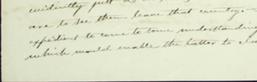 evidently put a
are to see them leave that
expedient to come to some understanding
which would enable the latter to